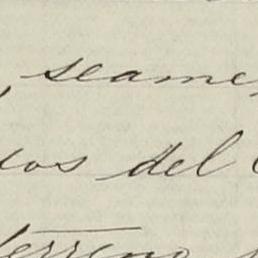 , seame
os del
terreno